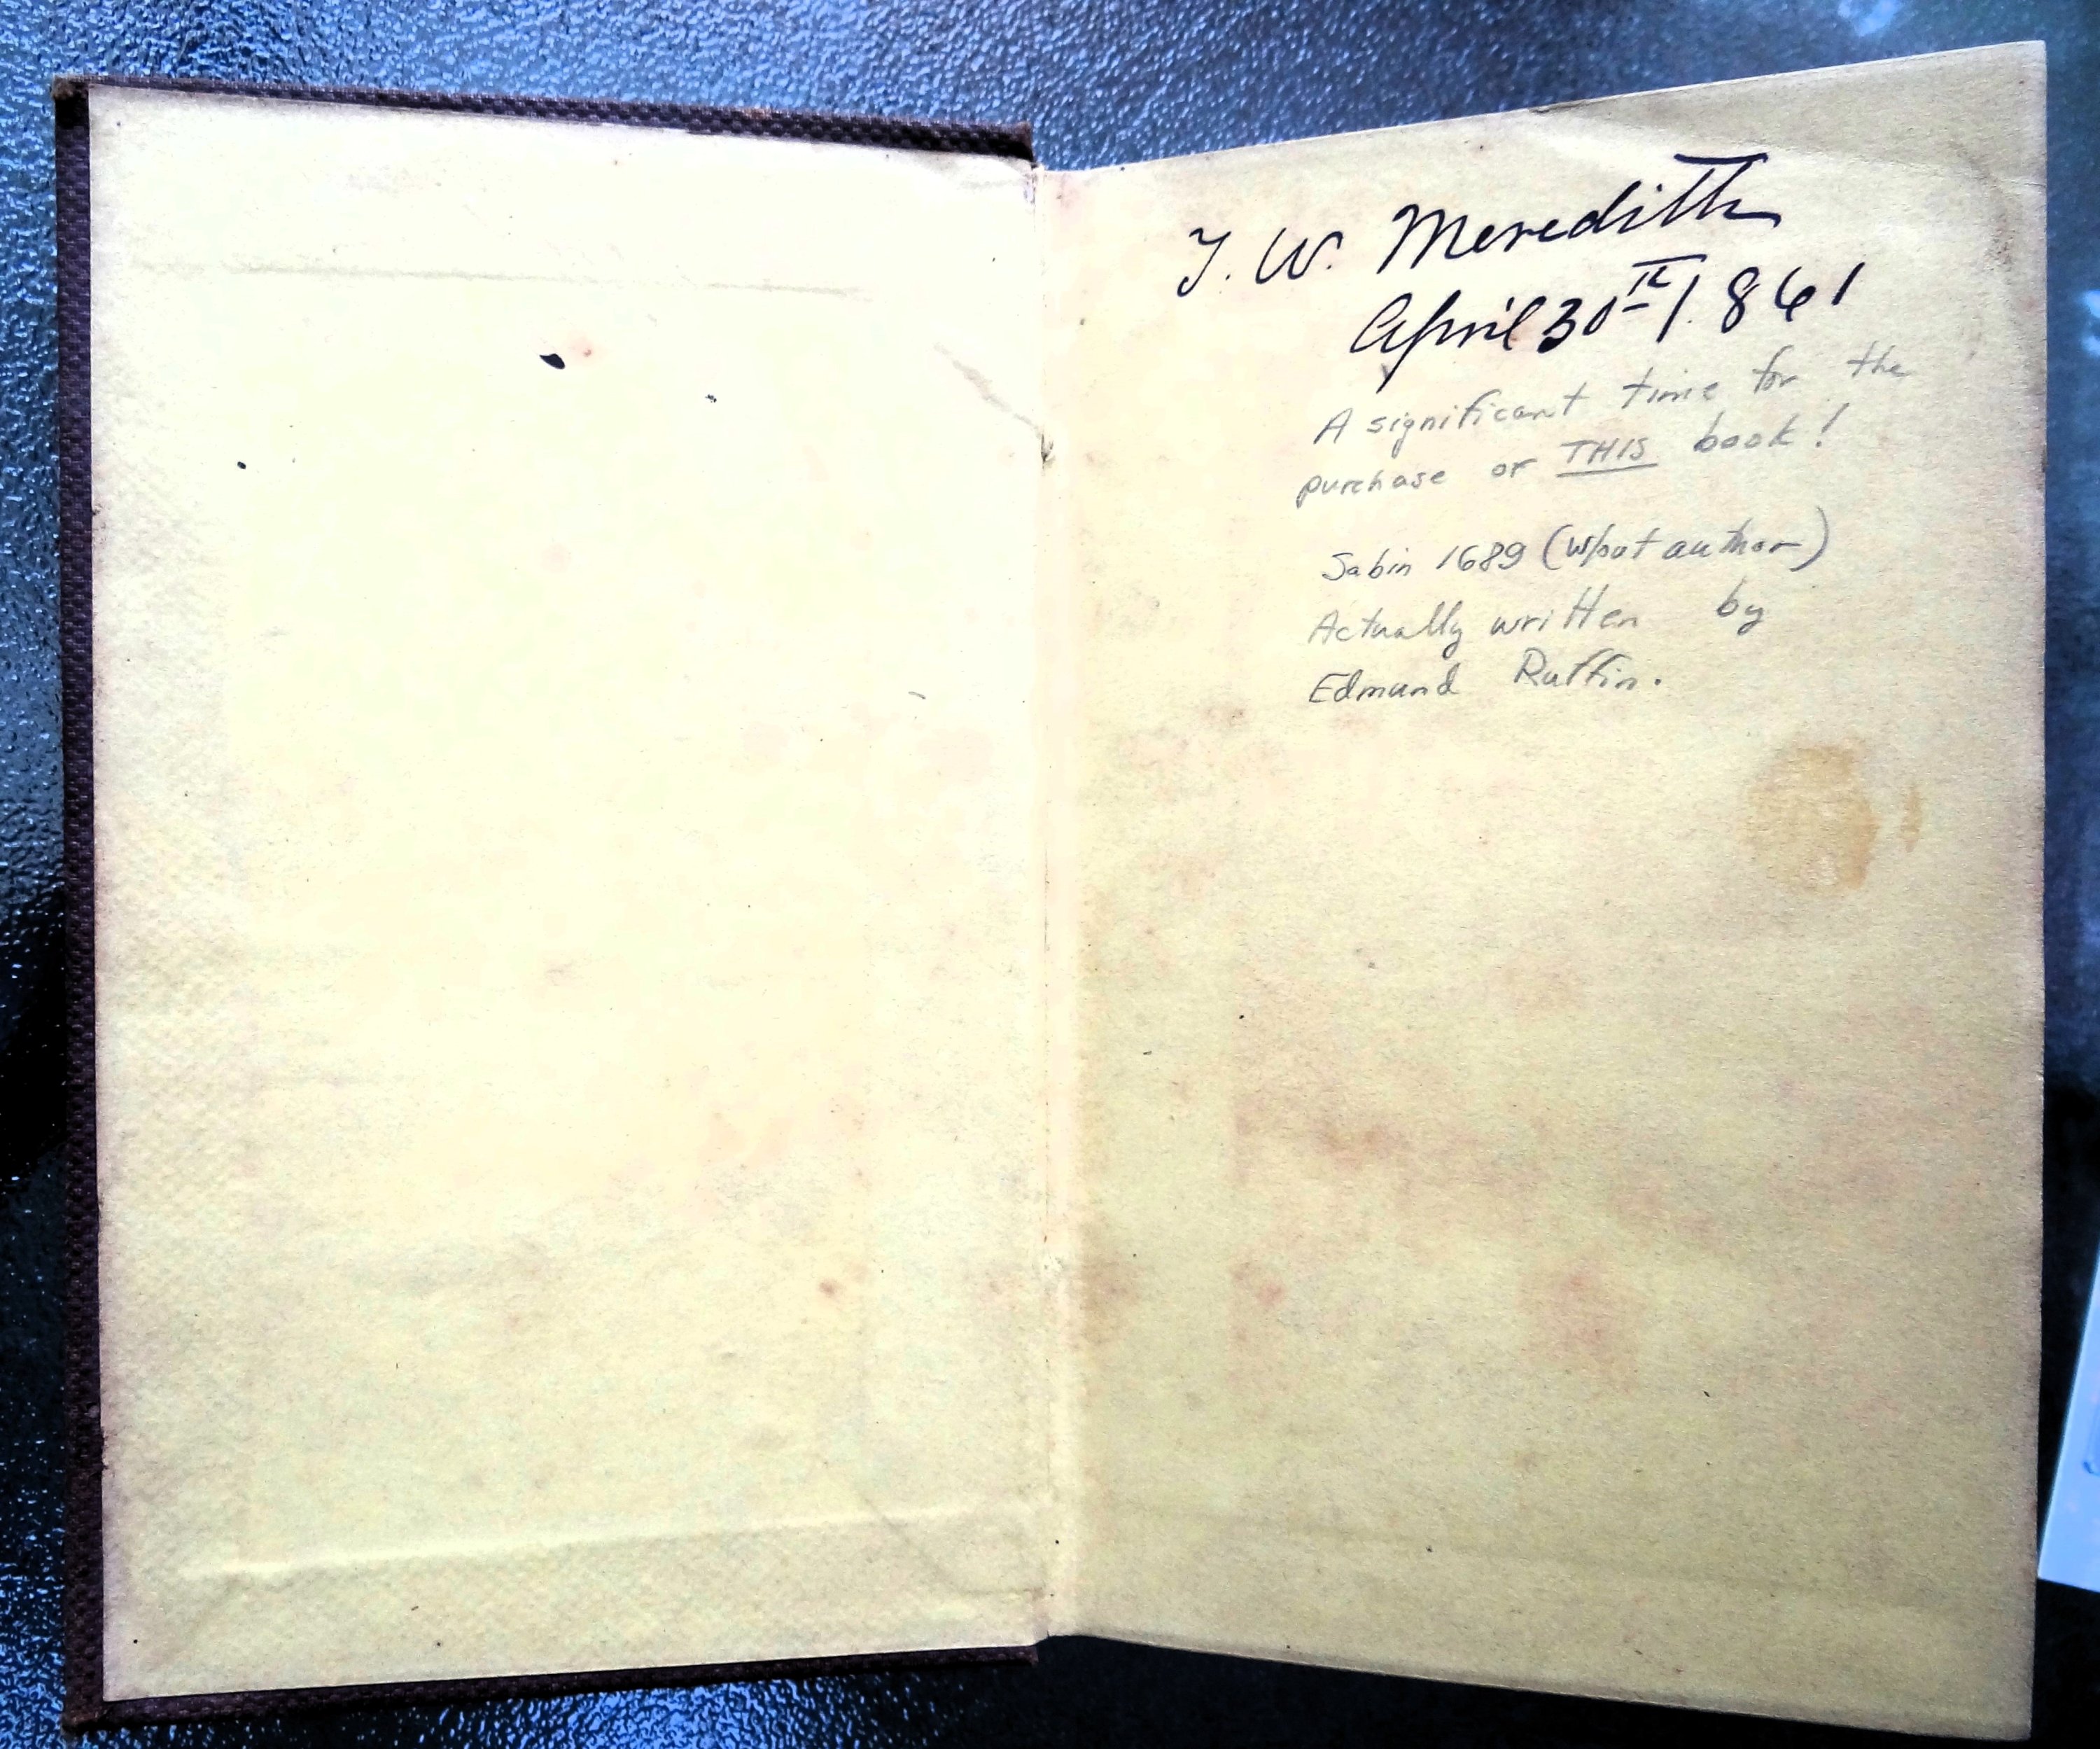 T. W. Meredith
April 30th 1861
A significant time for the
purchase or THIS book!
Sabin 1689 (w/out author)
Actually written by
Edmund Ruffin.